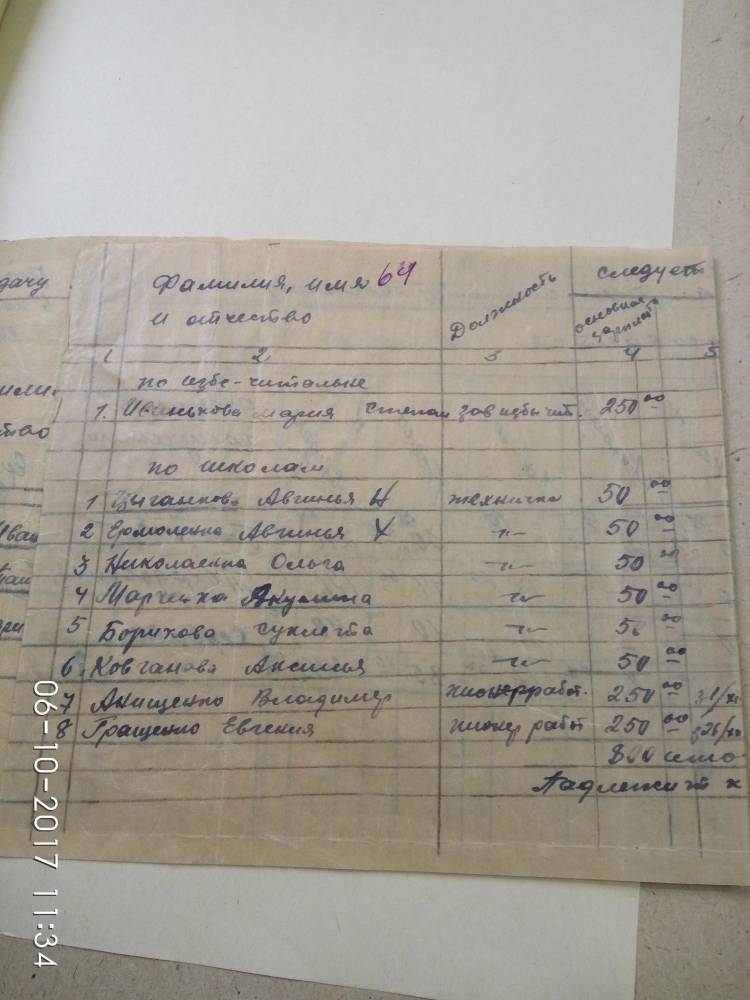 дачу
Фамилия, имя 64
и отчество
Должность
следует
основная зарплата
1 2 3 4 5
по избе-читальне
1. Иванькова Мария Степан зав избы чит. 250 00
по школам
1 Цыганкова Авгинья Н техничка 50 00
2 Ермоленко Авгинья У -"- 50 00
3 Николаенко Ольга -"- 50 00
4 Марченко Акулина -"- 50 00
5 Борикова -"- 50 00
6 Ковганова Аксинья -"- 50 00
7 Анищенко Владимер пионерработ. 250 00
8 Гращенко Евгения пионер работ 250 00
800
Надлежит к
06-10-2017 11:34